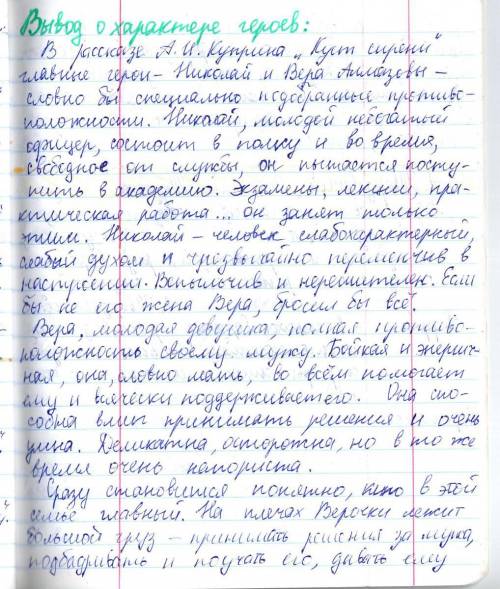 Вывод о характере героев:
В рассказе А.И. Куприна „Куст сирени"
главные герои - Николай и Вера Алмазовы -
словно бы специально подобранные противо-
положности. Николай, молодой небогатый
офицер, состоит в полку и во время,
свободное от службы, он пытается посту-
пить в академию. Экзамены, лекции, пра-
ктическая работа... он занят только
этим. Николай - человек слабохарактерный,
слабый духом и чрезвычайно переменчив в
настроении. Вспыльчив и нерешителен. Если
бы не его жена Вера, бросил бы всё.
Вера, молодая девушка, полная противо-
положность своему мужу. Бойкая и энергич-
ная, она, словно мать, во всём помогает
ему и всячески поддерживает его. Она спо-
собна вмиг принимать решения и очень
умна. Деликатна, осторожна, но в то же
время очень напориста.
Сразу становится понятно, кто в этой
семье главный. На плечах Верочки лежит
большой груз - принимать решения за мужа,
подбадривать и поучать его, давать ему